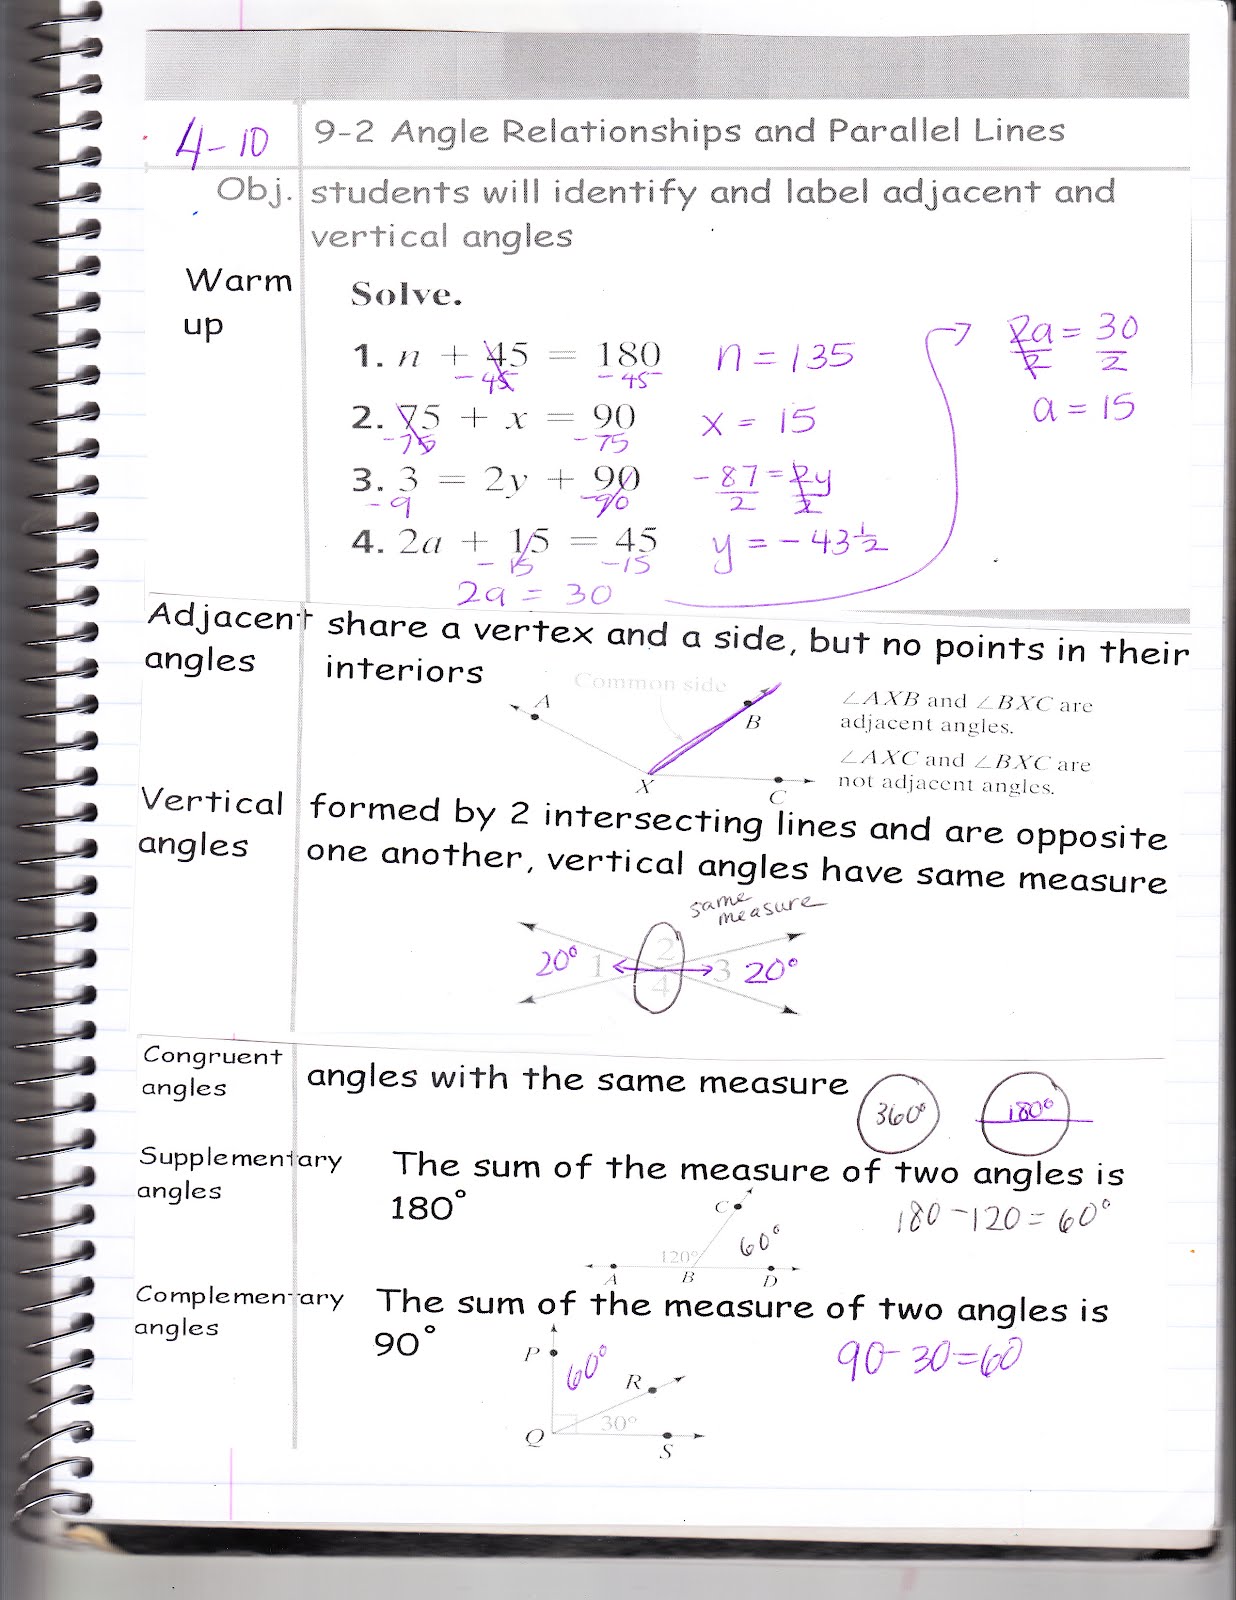 4-10 9-2 Angle Relationships and Parallel Lines
Obj. students will identify and label adjacent and
vertical angles
Warm
up
Solve.
1. n + 45 = 180 n = 135
-45 -45
2. 75 + x = 90 x = 15
-75 -75
3. 3 = 2y + 90 -87 = 2y
-9 -90 2 2
4. 2a + 15 = 45 y = -43 1/2
-15 -15
2a = 30
2a = 30
2 2
a = 15
Adjacent
angles
share a vertex and a side, but no points in their
interiors
Common side
A
B
X
C
∠AXB and ∠BXC are
adjacent angles.
∠AXC and ∠BXC are
not adjacent angles.
Vertical
angles
formed by 2 intersecting lines and are opposite
one another, vertical angles have same measure
same
measure
20° 1 2 3 20°
4
Congruent
angles
angles with the same measure
360° 180°
Supplementary
angles
The sum of the measure of two angles is
180°
180-120=60°
C
120° 60°
A B D
Complementary
angles
The sum of the measure of two angles is
90°
90-30=60
P 60°
R
30°
Q S